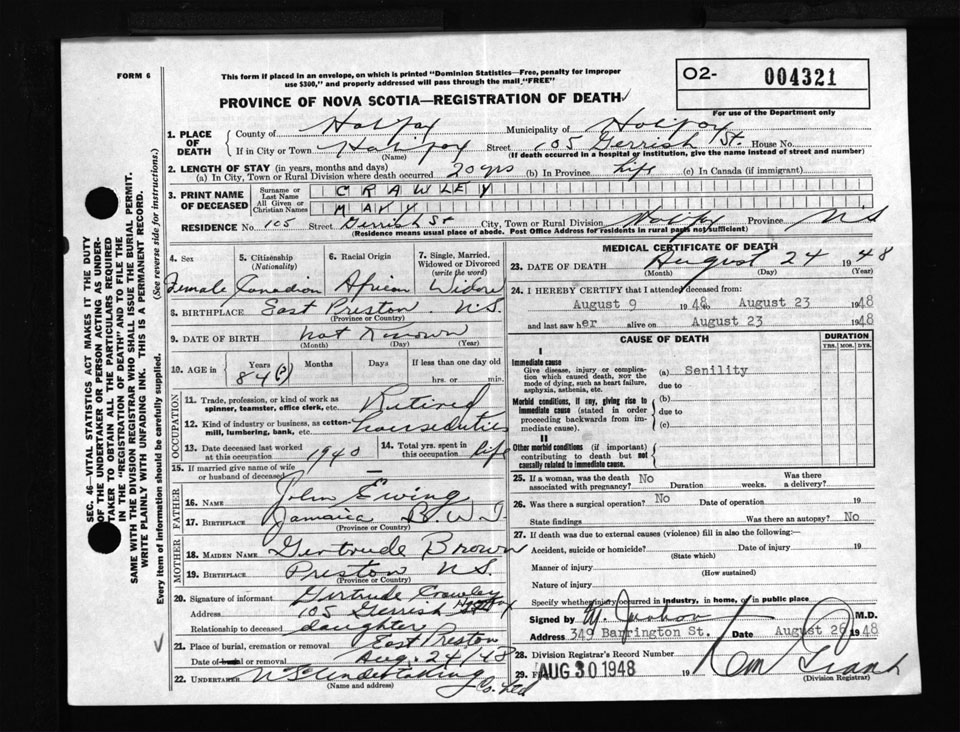 FORM 6
This form if placed in an envelope, on which is printed "Dominion Statistics—Free, penalty for improper
use $300," and properly addressed will pass through the mail "FREE"
O2- 004321
For use of the Department only
PROVINCE OF NOVA SCOTIA—REGISTRATION OF DEATH
1. PLACE OF DEATH
County of Halifax Municipality of Halifax
If in City or Town Halifax Street 105 Gerrish St. House No.
(Name) (If death occurred in a hospital or institution, give the name instead of street and number)
2. LENGTH OF STAY (in years, months and days)
(a) In City, Town or Rural Division where death occurred 20 yrs (b) In Province Life (c) In Canada (if immigrant)
3. PRINT NAME OF DECEASED
Surname or Last Name CRAWLEY
All Given or Christian Names MARY
RESIDENCE No. 105 Street Gerrish St City, Town or Rural Division Halifax Province N.S
(Residence means usual place of abode. Post Office Address for residents in rural parts not sufficient)
4. Sex 5. Citizenship (Nationality) 6. Racial Origin 7. Single, Married, Widowed or Divorced (write the word)
Female Canadian African Widow
8. BIRTHPLACE East Preston N.S.
(Province or Country)
9. DATE OF BIRTH Not Known
(Month) (Day) (Year)
10. AGE in Years Months Days If less than one day old
84(?) hrs. or min.
OCCUPATION
11. Trade, profession, or kind of work as spinner, teamster, office clerk, etc. Retired
12. Kind of industry or business, as cotton-mill, lumbering, bank, etc. house duties
13. Date deceased last worked at this occupation 1940 14. Total yrs. spent in this occupation life
15. If married give name of wife or husband of deceased —
FATHER
16. Name John Ewing
17. Birthplace Jamaica B.W.I
(Province or Country)
MOTHER
18. Maiden Name Gertrude Brown
19. Birthplace Preston N.S.
(Province or Country)
20. Signature of informant Gertrude Crawley
Address 105 Gerrish St Halifax
Relationship to deceased daughter
21. Place of burial, cremation or removal East Preston
Date of burial or removal Aug. 24/48
22. UNDERTAKER N.S. Undertaking Co. Ltd
(Name and address)
MEDICAL CERTIFICATE OF DEATH
23. DATE OF DEATH August 24 1948
(Month) (Day) (Year)
24. I HEREBY CERTIFY that I attended deceased from:
August 9 1948 August 23 1948
and last saw her alive on August 23 1948
CAUSE OF DEATH DURATION
YRS. MOS. DYS.
I
Immediate cause
Give disease, injury or complication which caused death, not the mode of dying, such as heart failure, asphyxia, asthenia, etc.
(a) Senility
due to
Morbid conditions, if any, giving rise to immediate cause (stated in order proceeding backwards from immediate cause).
(b)
due to
(c)
II
Other morbid conditions (if important) contributing to death but not causally related to immediate cause.
25. If a woman, was the death associated with pregnancy? No Duration weeks. Was there a delivery?
26. Was there a surgical operation? No Date of operation 19
State findings Was there an autopsy? No
27. If death was due to external causes (violence) fill in also the following:—
Accident, suicide or homicide? Date of injury 19
(State which)
Manner of injury
(How sustained)
Nature of injury
Specify whether injury occurred in industry, in home, or in public place
Signed by M.D.
Address 349 Barrington St. Date August 26 1948
28. Division Registrar's Record Number
29. AUG 30 1948
(Division Registrar)
SEC. 46—VITAL STATISTICS ACT MAKES IT THE DUTY
OF THE UNDERTAKER OR PERSON ACTING AS UNDER-
TAKER TO OBTAIN ALL THE PARTICULARS REQUIRED
IN THE "REGISTRATION OF DEATH" AND TO FILE THE
SAME WITH THE DIVISION REGISTRAR WHO SHALL ISSUE THE BURIAL PERMIT.
WRITE PLAINLY WITH UNFADING INK. THIS IS A PERMANENT RECORD.
Every item of information should be carefully supplied. (See reverse side for instructions.)